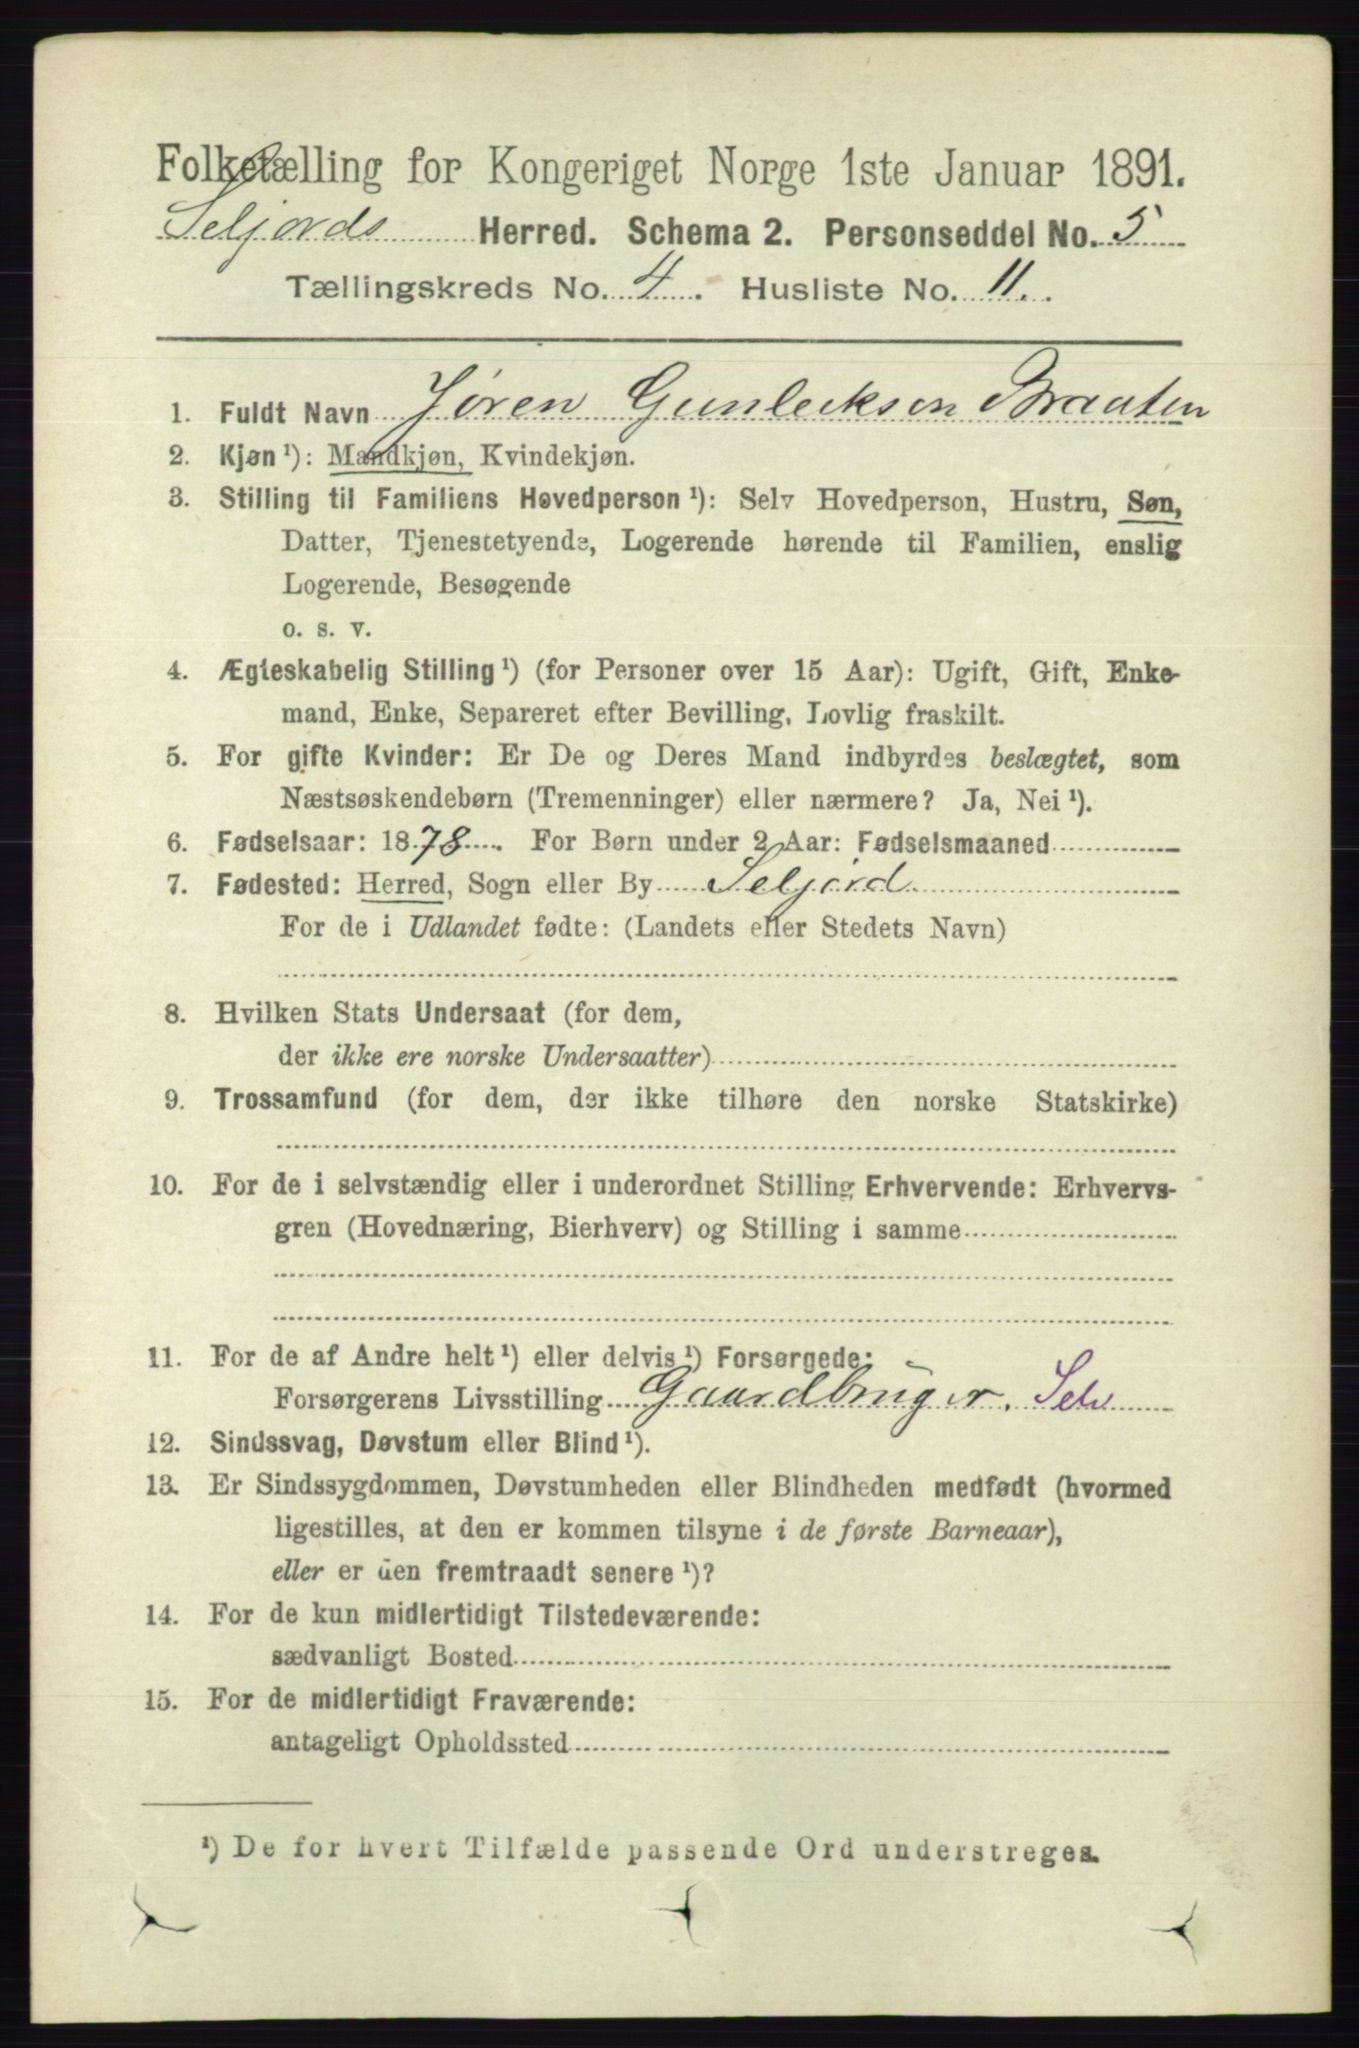 Folketælling for Kongeriget Norge 1ste Januar 1891.
Seljords Herred. Schema 2. Personseddel No. 5
Tællingskreds No. 4. Husliste No. 11.
1. Fuldt Navn Jøren Gunleiksen Braaten
2. Kjøn ¹): Mandkjøn, Kvindekjøn.
3. Stilling til Familiens Hovedperson ¹): Selv Hovedperson, Hustru, Søn,
Datter, Tjenestetyende, Logerende hørende til Familien, enslig
Logerende, Besøgende
o. s. v.
4. Ægteskabelig Stilling ¹) (for Personer over 15 Aar): Ugift, Gift, Enke-
mand, Enke, Separeret efter Bevilling, Lovlig fraskilt.
5. For gifte Kvinder: Er De og Deres Mand indbyrdes beslægtet, som
Næstsøskendebørn (Tremenninger) eller nærmere? Ja, Nei ¹).
6. Fødselsaar: 1878. For Børn under 2 Aar: Fødselsmaaned
7. Fødested: Herred, Sogn eller By Seljord
For de i Udlandet fødte: (Landets eller Stedets Navn)
8. Hvilken Stats Undersaat (for dem,
der ikke ere norske Undersaatter)
9. Trossamfund (for dem, der ikke tilhøre den norske Statskirke)
10. For de i selvstændig eller i underordnet Stilling Erhvervende: Erhvervs-
gren (Hovednæring, Bierhverv) og Stilling i samme
11. For de af Andre helt ¹) eller delvis ¹) Forsørgede:
Forsørgerens Livsstilling Gaardbruger. Selv
12. Sindssvag, Døvstum eller Blind ¹).
13. Er Sindssygdommen, Døvstumheden eller Blindheden medfødt (hvormed
ligestilles, at den er kommen tilsyne i de første Barneaar),
eller er den fremtraadt senere ¹)?
14. For de kun midlertidigt Tilstedeværende:
sædvanligt Bosted
15. For de midlertidigt Fraværende:
antageligt Opholdssted
¹) De for hvert Tilfælde passende Ord understreges.